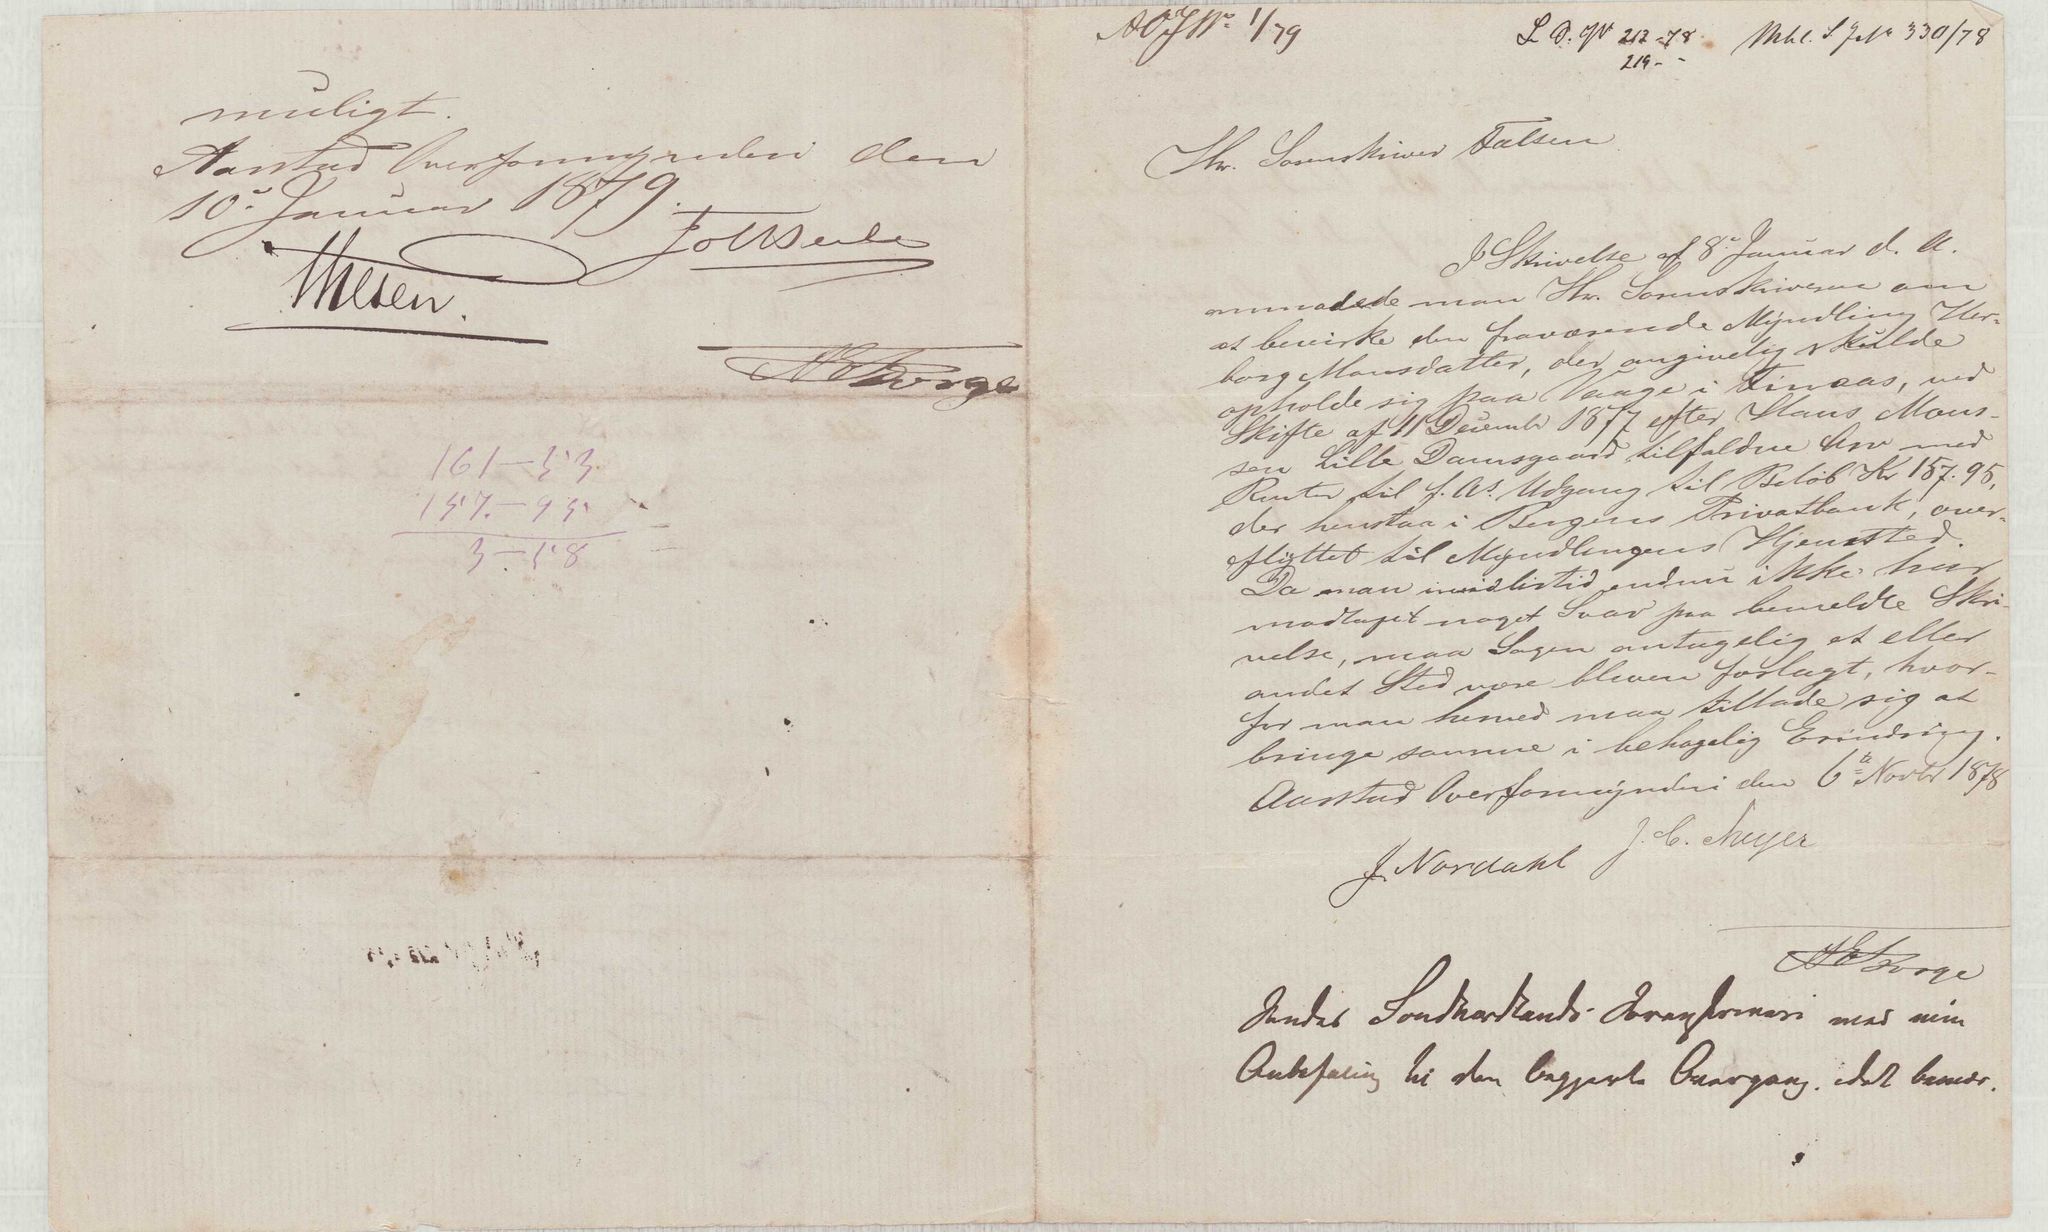 muligt.
Aarstad Overformynderi den
10de Januar 1879.
Thesen.
161-53
157.-95
3-58
1/79
L. D. No 212-78
219 - -
No 330/78
Hr. Sorenskriver Falsen
I Skrivelse af 8de Januar d. A.
anmodede man Hr. Sorenskriveren om
at bevirke den fraværende Myndling Her-
borg Monsdatter, der angivelig skulde
opholde sig paa Vaage i Finaas, ved
Skifte af 11 Decembr 1877 efter Hans Mons-
sen Lille Damsgaard tilfaldne Arv med
Renter til f. As. Udgang til Beløb Kr 157.95,
der henstaa i Bergens Privatbank, over-
flyttet til Myndlingens Hjemsted.
Da man imidlertid endnu ikke har
modtaget noget Svar paa bemeldte Skri-
velse, maa Sagen antagelig et eller
andet Sted være bleven forlagt, hvor-
for man herved maa tillade sig at
bringe samme i behagelig Erindring.
Aarstad Overformynderi den 6te Novbr 1878
J. C. Meyer
J. Nordahl
A E Borge
Sendes Søndhordlands Sorenskriveri med min
Anbefaling til den begjærte Overgang, idet bemær.